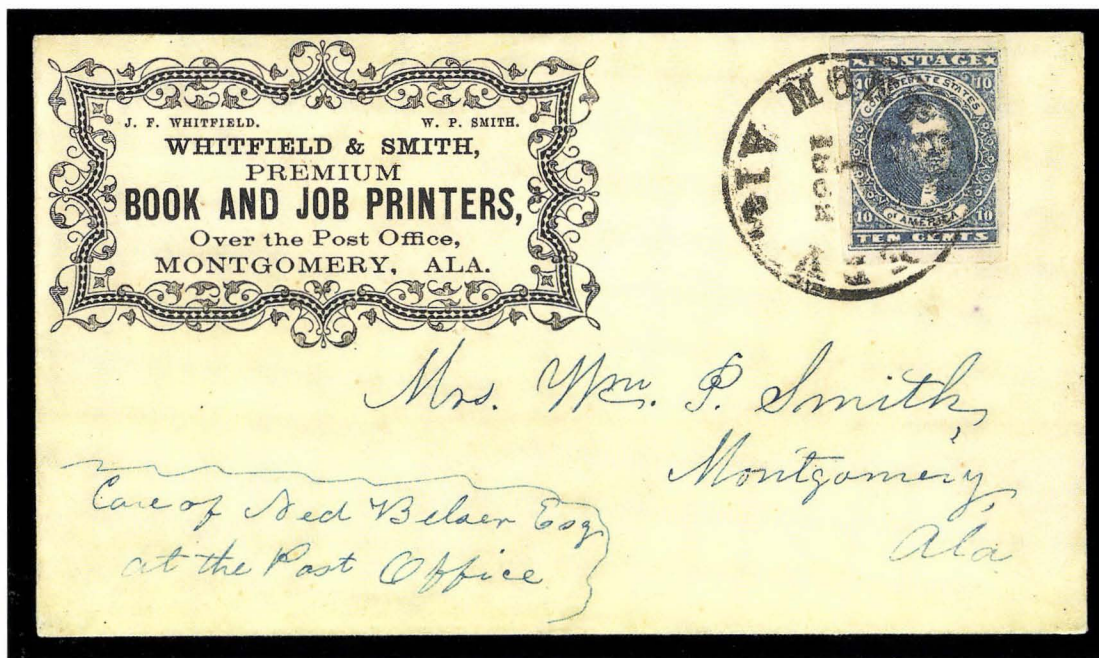 J. F. WHITFIELD. W. P. SMITH.
WHITFIELD & SMITH,
PREMIUM
BOOK AND JOB PRINTERS,
Over the Post Office,
MONTGOMERY, ALA.
POSTAGE
10 10
CONFEDERATE STATES
OF AMERICA
10 10
TEN CENTS
Mrs. Wm. P. Smith,
Montgomery,
Ala
Care of Ned Belser Esq
at the Post Office